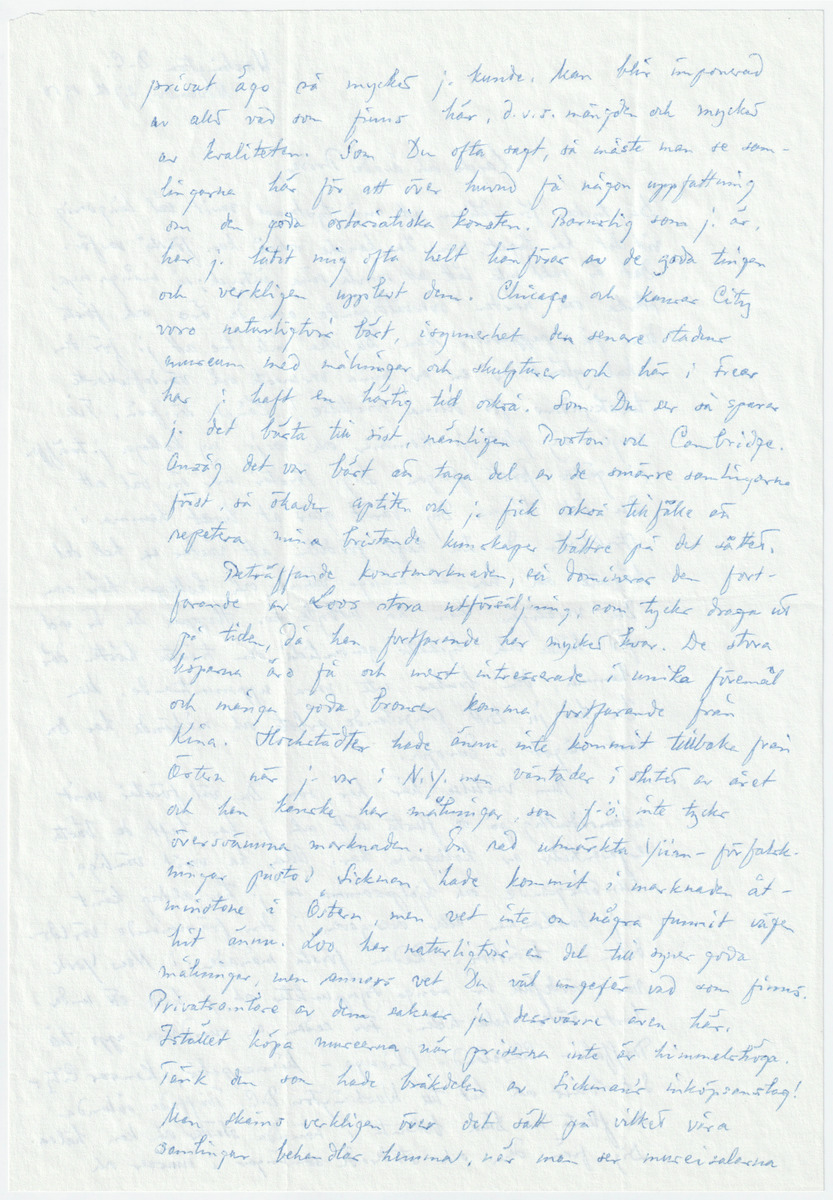 privat ägo så mycket j. kunde. Man blir imponerad
av allt vad som finns här, d.v.s. mängden och mycket
av kvaliteten. Som Du ofta sagt, så måste man se sam-
lingarna här för att över huvud få någon uppfattning
om den goda östasiatiska konsten. Barnslig som j. är,
har j. låtit mig ofta helt hänföras av de goda tingen
och verkligen upplevt dem. Chicago och Kansas City
voro naturligtvis bäst, isynnerhet den senare stadens
museum med målningar och skulpturer och här i Freer
har j. haft en härlig tid också. Som Du ser så sparar
j. det bästa till sist, nämligen Boston och Cambridge.
Ansåg det var bäst att taga del av de smärre samlingarna
först, så ökades aptiten och j. fick också tillfälle att
repetera mina bristande kunskaper bättre på det sättet.
Beträffande konstmarknaden, så domineras den fort-
farande av Loos stora utförsäljning, som tycks draga ut
på tiden, då han fortfarande har mycket kvar. De stora
köparna äro få och mest intresserade i unika föremål
och många goda bronser komma fortfarande från
Kina. Hochstädter hade ännu inte kommit tillbaka från
Östern när j. var i N.Y. men väntades i slutet av året
och han kanske har målningar, som f.ö. inte tycks
översvämma marknaden. En rad utmärkta Yüan-förfalsk-
ningar påstod Sickman hade kommit i marknaden åt-
minstone i Östern, men vet inte om några funnit vägen
hit ännu. Loo har naturligtvis en del till synes goda
målningar, men annars vet Du väl ungefär vad som finns.
Privatsamlare av dem saknas ju dessvärre även här.
Istället köpa museerna när priserna inte är himmelshöga.
Tänk den som hade bråkdelen av Sickman's inköpsanslag!
Man skäms verkligen över det sätt på vilket våra
samlingar behandlas hemma, när man ser museisalarna